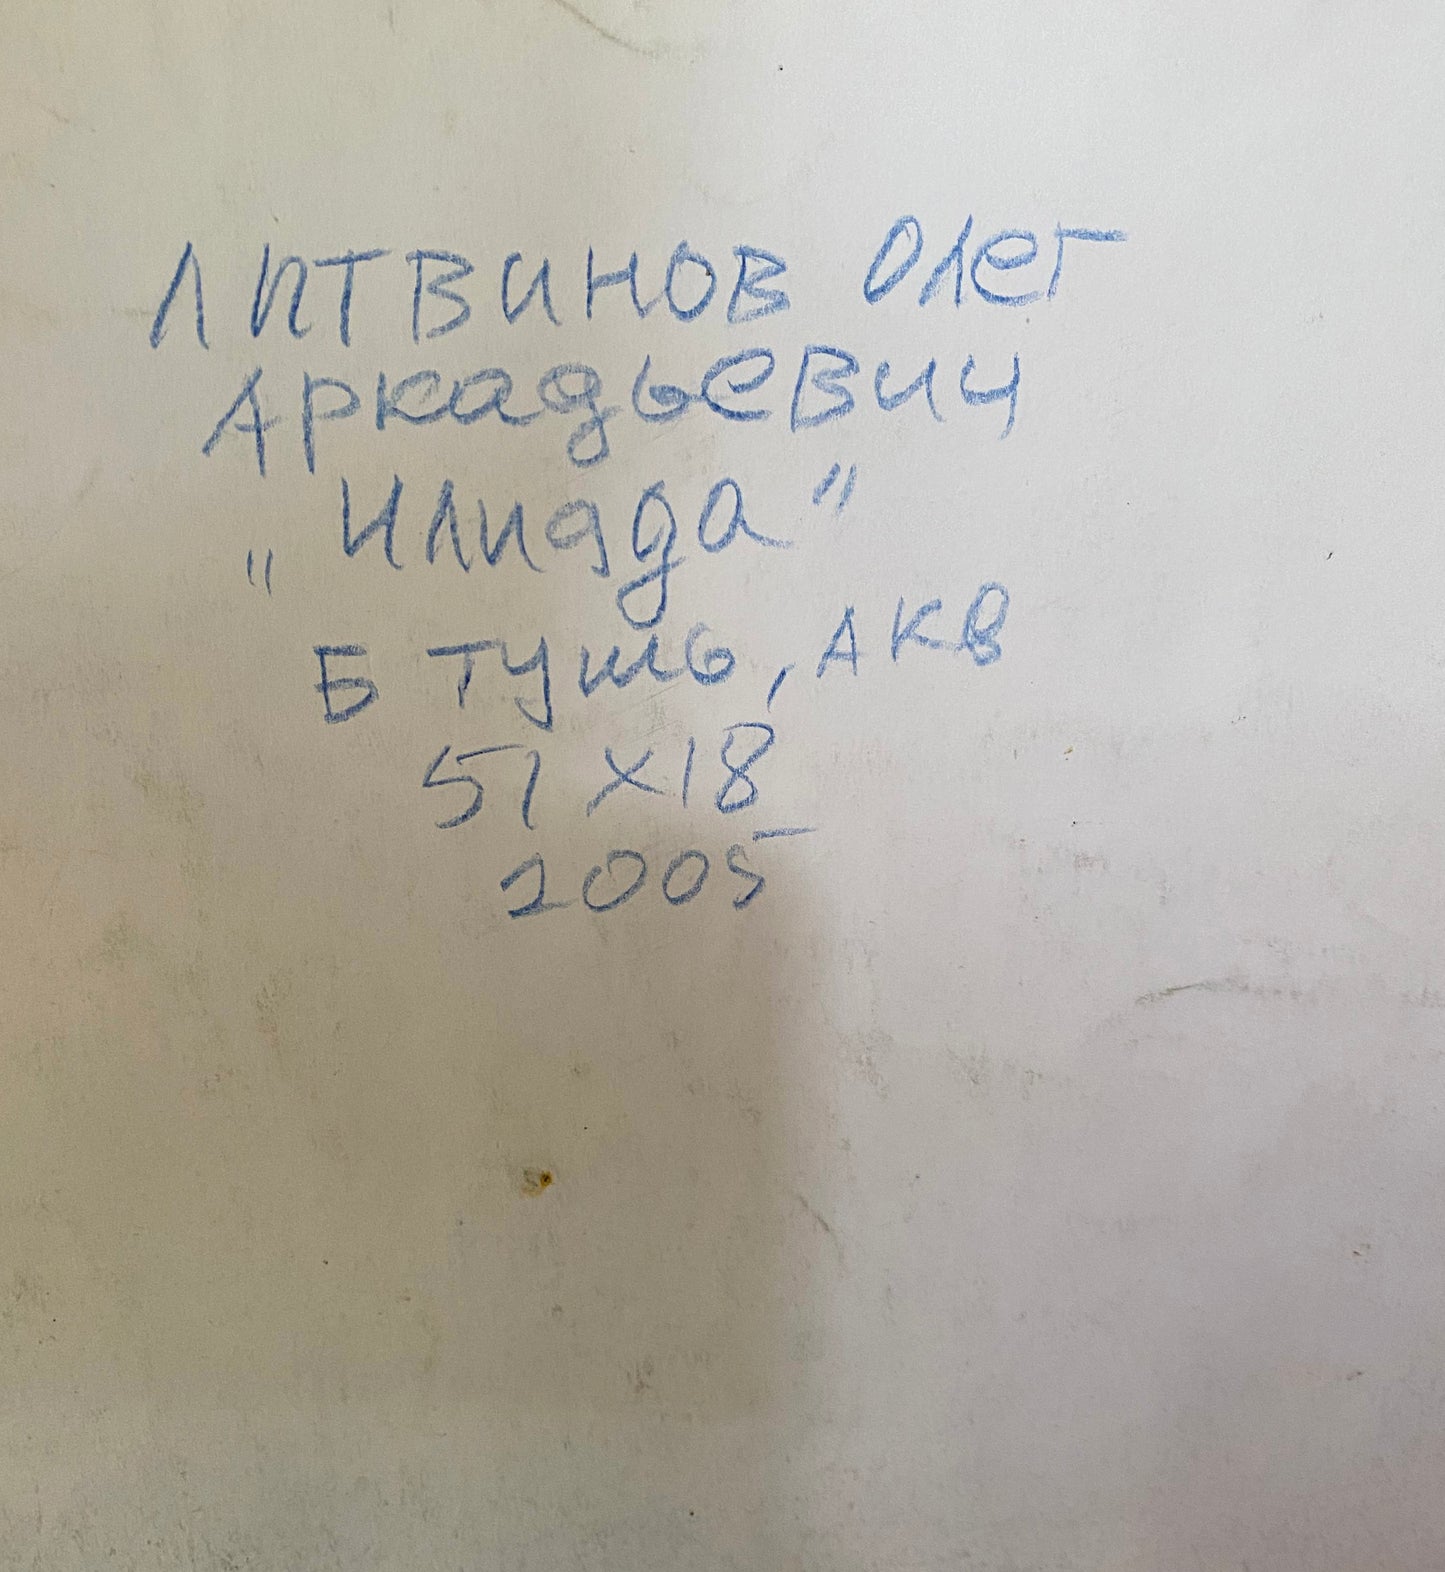 ЛИТВИНОВ Олег
Аркадьевич
„Илиада"
Б тушь, акв
51 х 18
2005